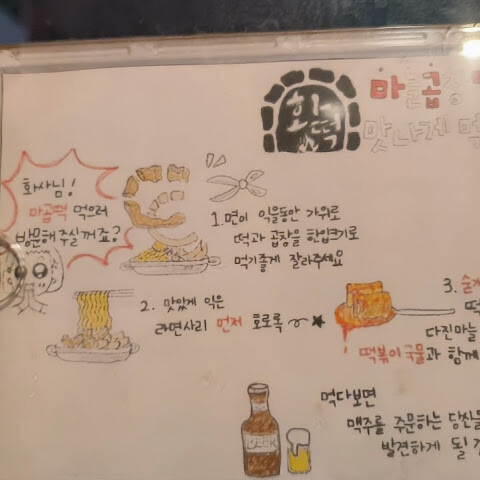 화떡
마늘곱창
맛나게 먹
화사님!
마곱떡 먹으러
방문해주실꺼죠?
1. 면이 익을동안 가위로
떡과 곱창을 한입크기로
먹기좋게 잘라주세요
2. 맛있게 익은
라면사리 먼저 호로록
3. 숟가
떡
다진마늘
떡볶이 국물과 함께
먹다보면
맥주를 주문하는 당신을
발견하게 될